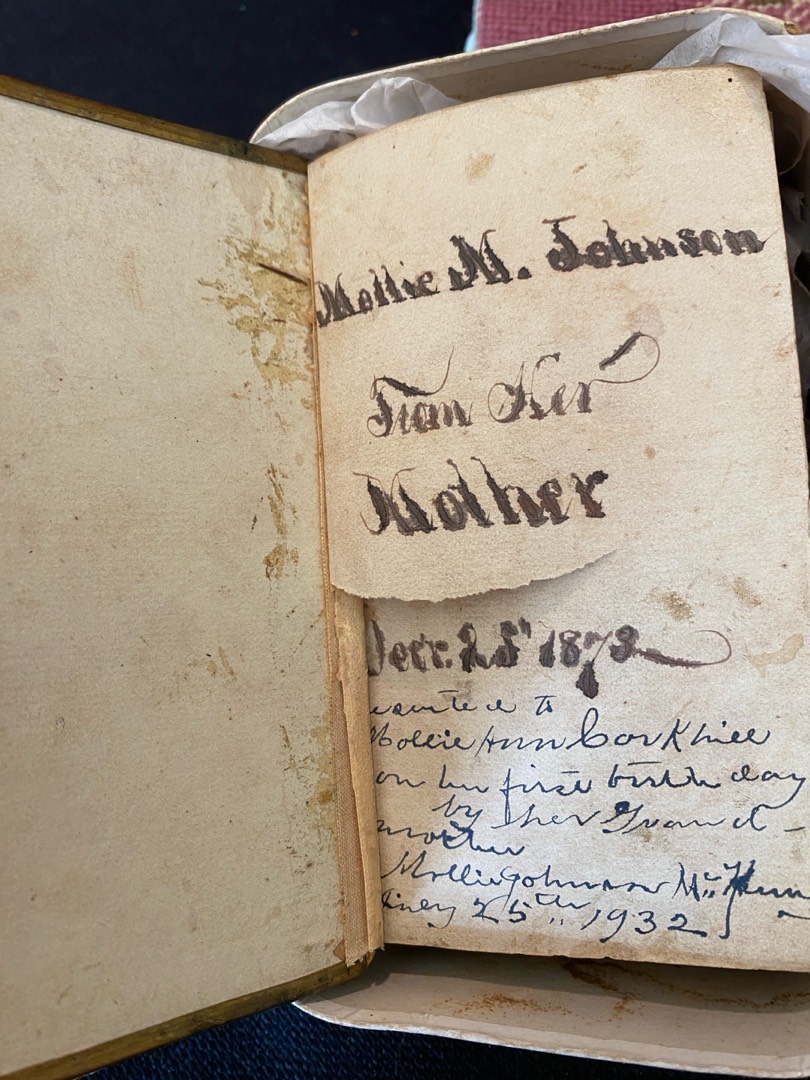 Mollie M. Johnson
From Her
Mother
Decr. 25" 1873
esented to
Mollie Ann Corkhill
on her first birth day
by her Grand-
mother
Mollie Johnson
25th 1932